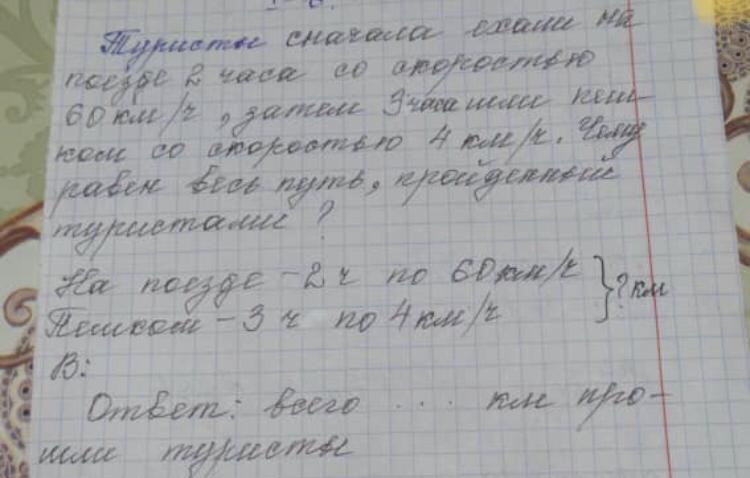 Туристы сначала ехали на
поезде 2 часа со скоростью
60 км/ч, затем 3 часа шли пеш-
ком со скоростью 4 км/ч. Чему
равен весь путь, пройденный
туристами?
На поезде - 2 ч по 60 км/ч } ? км
Пешком - 3 ч по 4 км/ч
В:
Ответ: всего ... км про-
шли туристы